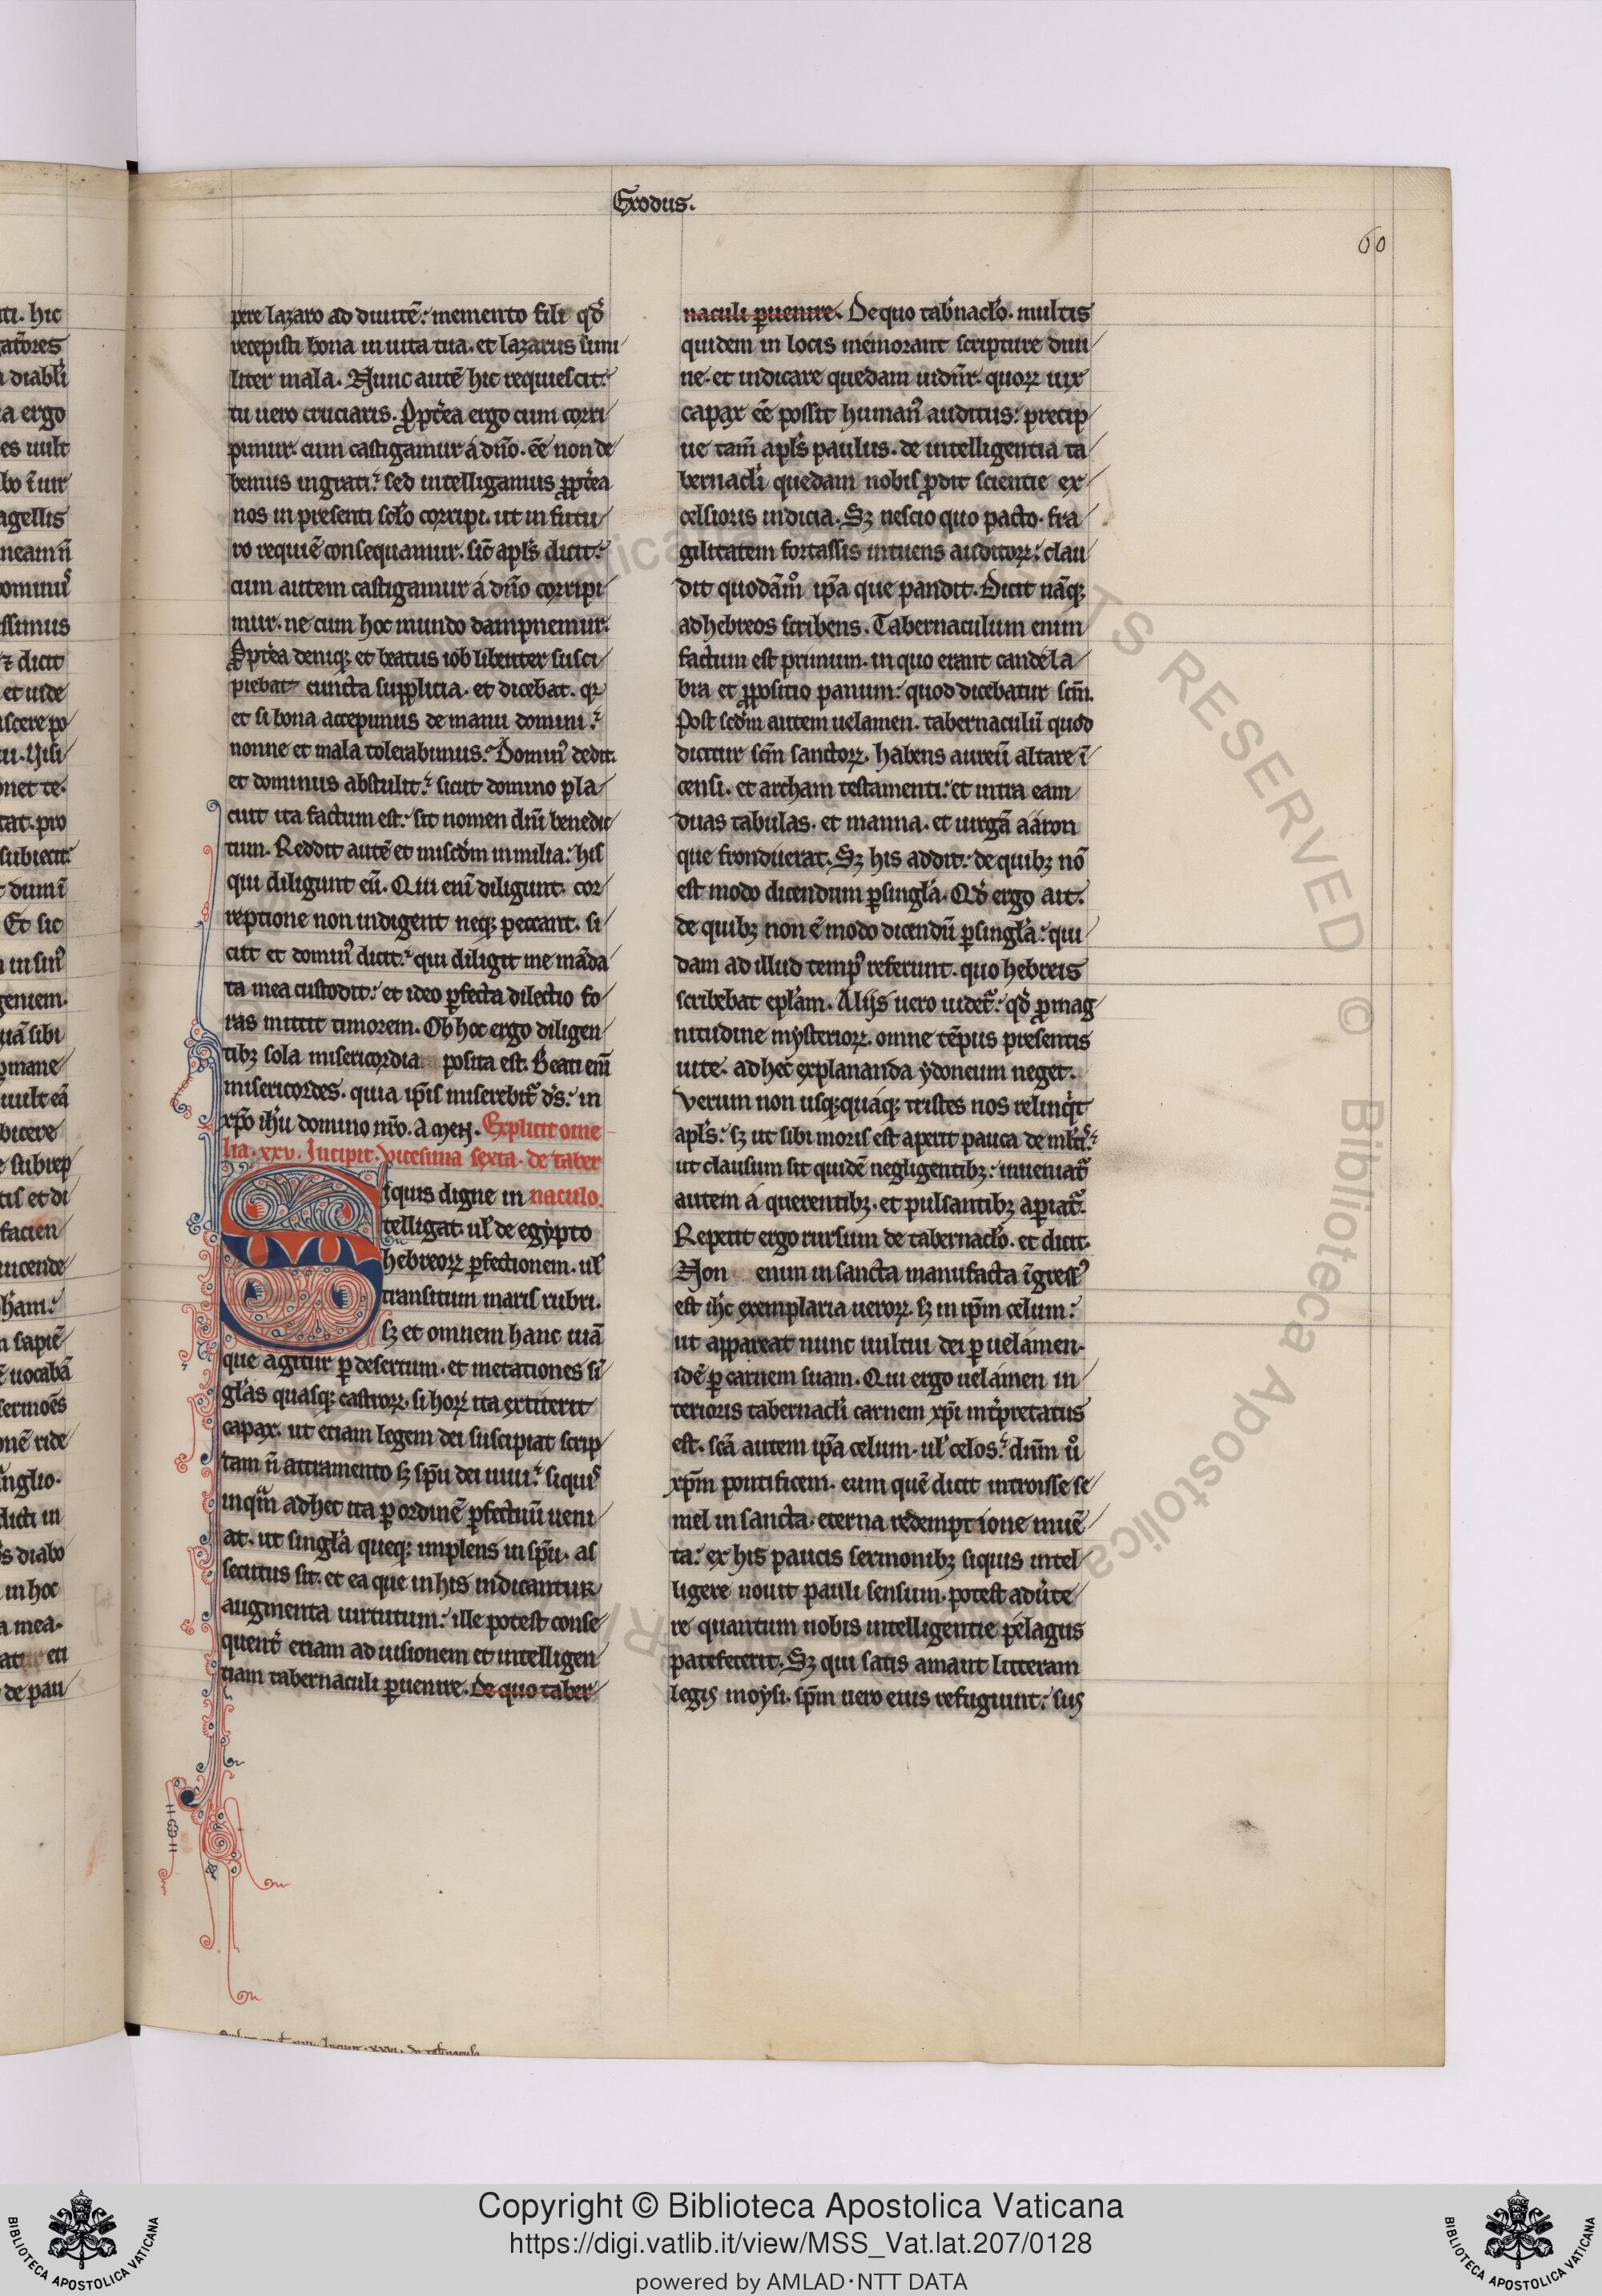 Exodus.
60
pere lazaro ad diuitē: memento fili qđ
recepisti bona in uita tua. et lazarus simi
liter mala. Nunc autē hic requiescit:
tu uero cruciaris. Ꝓpt̾ea ergo cum corri
pimur. cum castigamur á dño. eē non de
bemus ingrati: sed intelligamus ꝓpt̾ea
nos in presenti sc̾lo corripi. ut in futu
ro requiē consequamur. sic̄ apl̾s dicit:
cum autem castigamur á dño corripi
mur. ne cum hoc mundo dampnemur.
Ꝓpt̾ea deniqꝫ et beatus iob libenter susci
piebat cuncta supplicia. et dicebat. qꝛ
et si bona accepimus de manu domini:
nonne et mala tolerabimus. Domin᾽ dedit.
et dominus abstulit: sicut domino pla
cuit ita factum est: sit nomen dñi benedic
tum. Reddit autē et mis̄cdm in milia: his
qui diligunt eū. Qui eni̅ diligunt. cor
reptione non indigent neqꝫ peccant. si
cut et domin᾽ dicit: qui diligit me mā̅da
ta mea custodit: et ideo ꝑfecta dilectio fo
ras mittit timorem. Ob hoc ergo diligen
tibꝫ sola misericordia posita est. Beati eni̅
misericordes. quia ip̄is miserebit̾ d̄s: in
xp̄o ih̄u domino nr̄o. amen. Explicit ome
lia. xxv. Incipit. vicesima sexta. de taber
Siquis digne in naculo.
telligat. ul̾ de egẏpto
hebreoꝝ ꝑfectionem. ul̾
transitum maris rubri.
sꝫ et omnem hanc uiā
que agitur ꝑ desertum. et metationes si̅
gl̾as quasqꝫ castroꝝ. si hoꝝ ita extiterit
capax. ut etiam legem dei suscipiat scrip
tam n̄ attramento sꝫ sp̄u dei uiui: siquis
inqͣm ad hec ita ꝑ ordinē ꝑfectuū ueni
at. ut singl̾a queqꝫ implens in sp̄u. as
secutus sit. et ea que in his indicantur
augmenta uirtutum: ille potest conse
quent̾ etiam ad uisionem et intelligen
tiam tabernaculi ꝑuenire. de quo taber
naculi ꝑuenire. De quo tab̾nacl̾o. multis
quidem in locis memorant scripture diui
ne. et indicare quedam uidn̄r. quoꝝ uix
capax eē possit human᾽ auditus: precip
ue tam̄ apl̾s paulus. de intelligentia ta
bernacl̾i quedam nobis ꝓdit scientie ex
celsioris indicia. Sꝫ nescio quo pacto. fra
gilitatem fortassis intuens auditoꝝ: clau
dit quodāmͦ ip̄a que pandit. Dicit nāqꝫ
ad hebreos scribens. Tabernaculum enim
factum est primum. in quo erant candela
bra et ꝓpositio panum: quod dicebatur scm̄.
Post scdm̄ autem uelamen. tabernaculū quod
dicitur scm̄ sanctoꝝ. habens aureū altare i̅
censi. et archam testamenti: et intra eam
duas tabulas. et manna. et uirgā aáron
que fronduerat. Sꝫ his addit: de quibꝫ nō
est modo dicendum ꝑ singl̾a. Qđ ergo ait.
de quibꝫ non ē modo dicendū ꝑ singl̾a: qui
dam ad illud temp᾽ referunt. quo hebreis
scribebat epl̾am. Alijs uero uidet̾: qđ ꝓ mag
nitudine mysterioꝝ. omne tēpus presentis
uite. ad hec explananda ẏdoneum neget.
Verum non usqꝫquáqꝫ tristes nos relinqͥt
apl̾s: sꝫ ut sibi moris est aperit pauca de ml̾tis:
ut clausum sit quidē negligentibꝫ: inueniat̾
autem á querentibꝫ. et pulsantibꝫ aꝑiat̾.
Repetit ergo rursum de tabernacl̾o. et dicit.
Non enim in sancta manufacta i̅gress᾽
est ih̄c exemplaria ueroꝝ. sꝫ in ip̄m celum:
ut appareat nunc uultui dei ꝑ uelamen.
idē ꝑ carnem suam. Qui ergo uelámen in
terioris tabernacl̾i carnem xp̄i int̾pretatus
est. scā autem ip̄a celum. ul̾ celos: dn̄m uͦ
xp̄m pontificem. eum quē dicit introisse se
mel in sancta. eterna redemptione inuē
ta: ex his paucis sermonibꝫ siquis intel
ligere nouit pauli sensum. potest adu̾te
re quantum nobis intelligentie pélagus
patefecerit. Sꝫ qui satis amant litteram
legis moẏsi. sp̄m uero eius refugiunt: sus
Copyright © Biblioteca Apostolica Vaticana
https://digi.vatlib.it/view/MSS_Vat.lat.207/0128
powered by AMLAD·NTT DATA
BIBLIOTECA APOSTOLICA VATICANA
BIBLIOTECA APOSTOLICA VATICANA